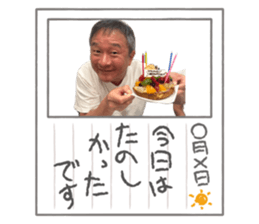 〇月×日
今日は
たのし
かった
です